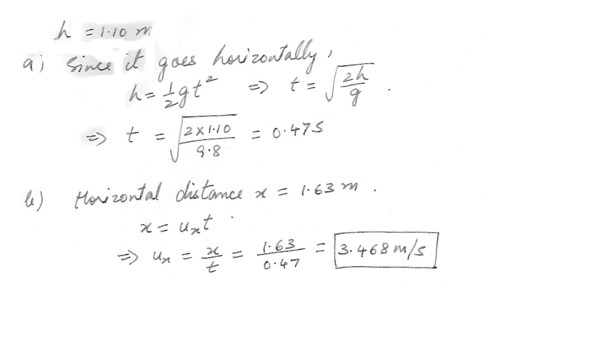 h = 1.10 m
a) Since it goes horizontally,
h = 1/2 gt² => t = √(2h/g) .
=> t = √(2×1.10/9.8) = 0.47 s
b) Horizontal distance x = 1.63 m .
x = uₓt .
=> uₓ = x/t = 1.63/0.47 = 3.468 m/s